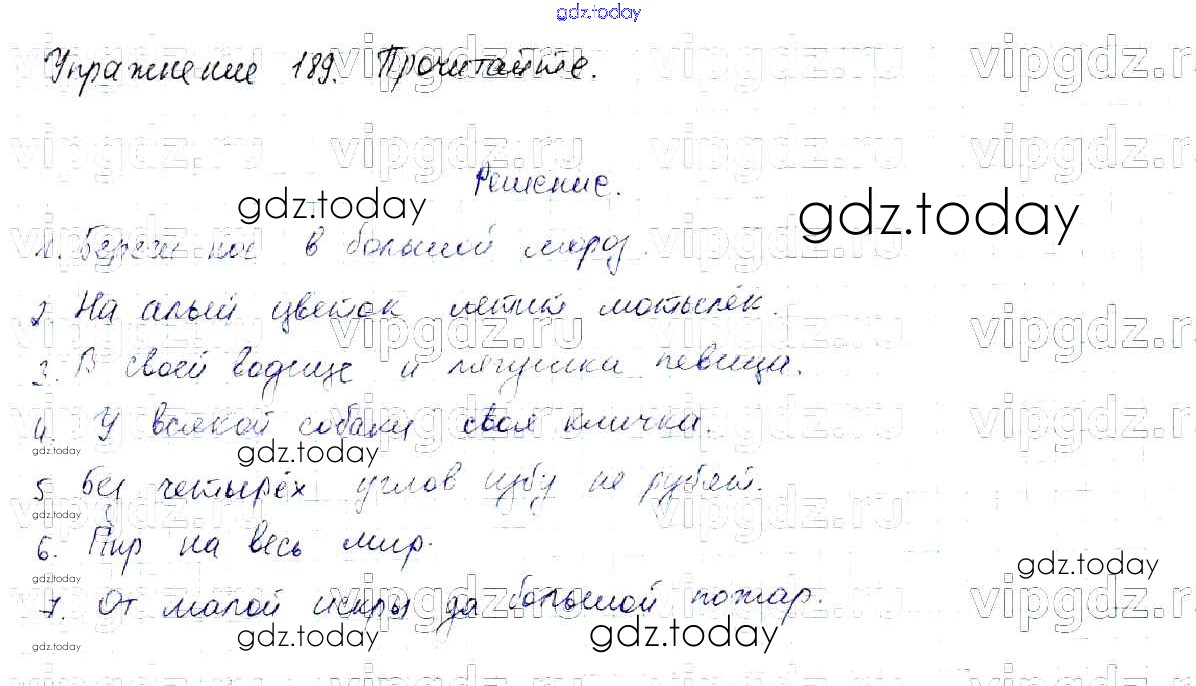 gdz.today
Упражнение 189. Прочитайте.
vipgdz.ru vipgdz.ru vipgdz.r
vipgdz.ru vipgdz.ru vipgdz.r
Решение.
gdz.today gdz.today
1. Береги нос в большой мороз.
2. На алый цветок летит мотылёк.
vipgdz.ru vipgdz.ru vipgdz.r
3. В своей водице и лягушка певица.
4. У всякой собаки своя кличка.
vipgdz.ru vipgdz.ru vipgdz.r
gdz.today gdz.today
5 Без четырёх углов избу не рубят.
gdz.today
6. Пир на весь мир.
gdz.today gdz.today
7. От малой искры да большой пожар.
vipgdz.ru vipgdz.ru vipgdz.r
gdz.today gdz.today gdz.today